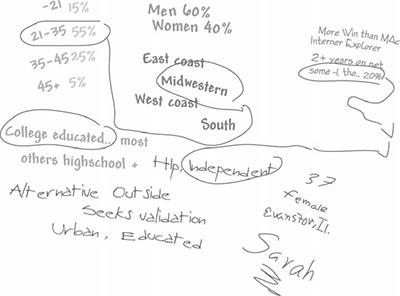 -21 15%
21-35 55%
35-45 25%
45+ 5%
Men 60%
Women 40%
East coast
Midwestern
West coast
South
More Win than MAc
Interner Explorer
2+ years on net
some -1, tho.. 20%
College educated.. most
others highschool +
Independent
Alternative Outside
Seeks validation
Urban, Educated
37
female
Evanston, Il.
Sarah